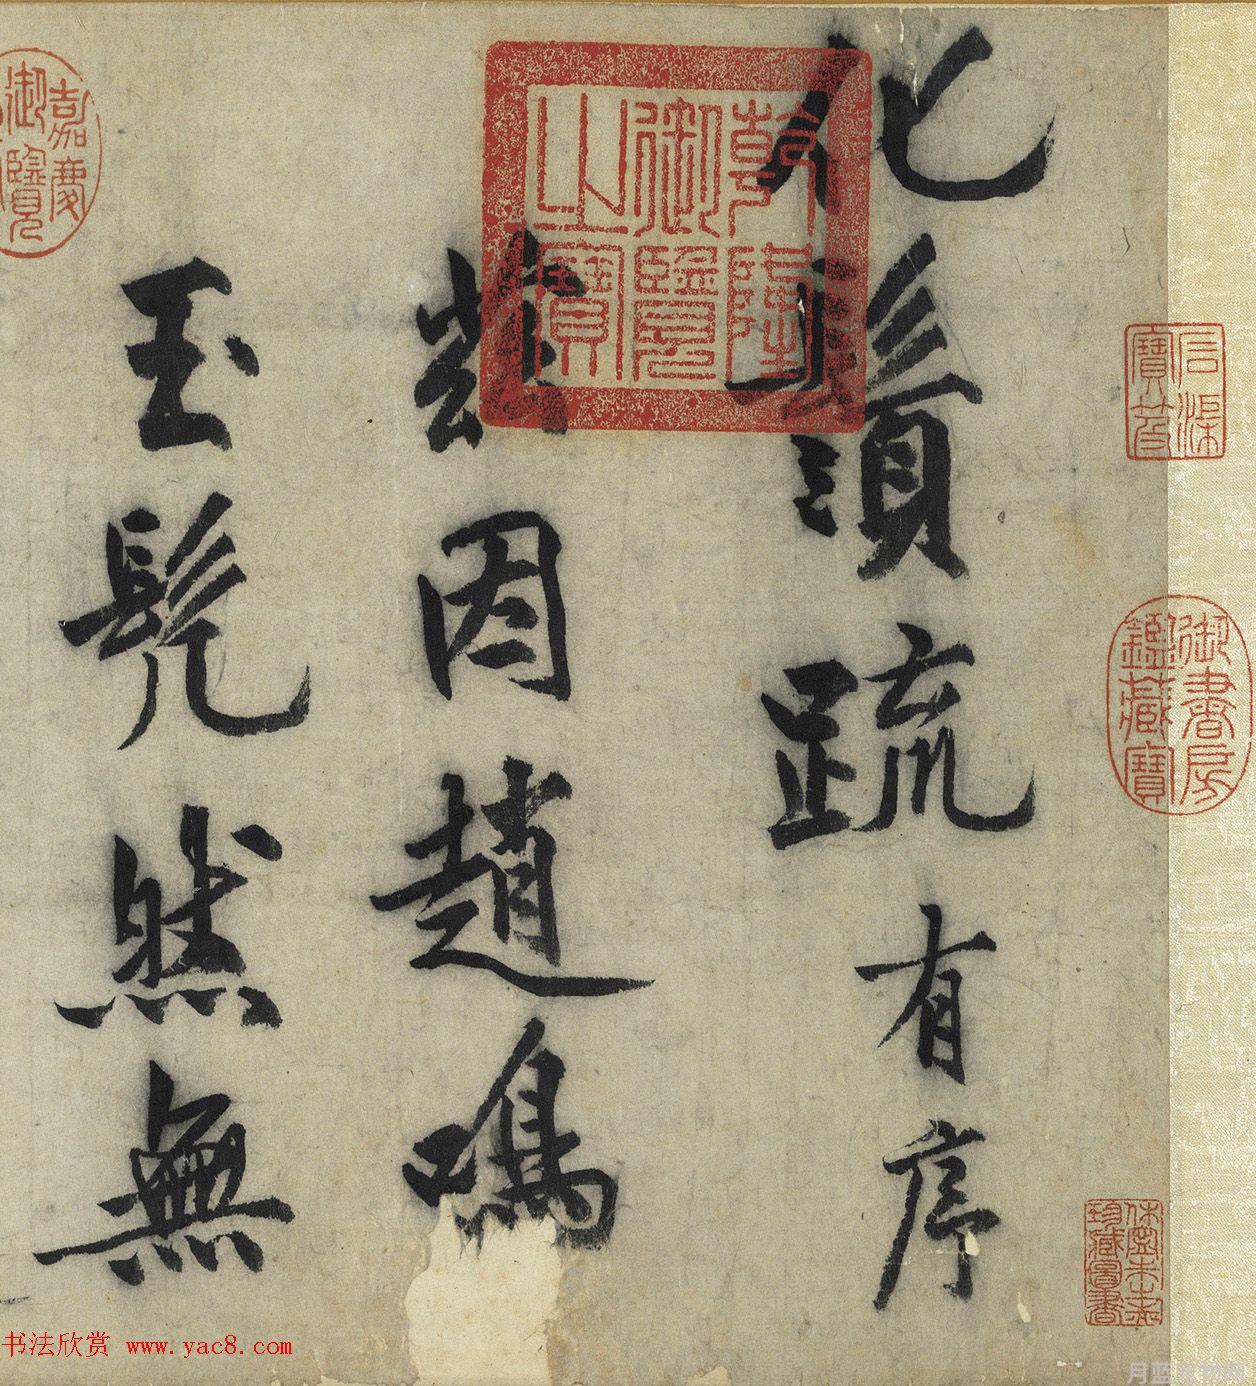 化鬚疏有序
茲因趙鳴
玉髡然無
乾隆御覽之寶
嘉慶御覽
石渠寶笈
御書房鑑藏寶
休寧朱之赤珍藏圖書
书法欣赏 www.yac8.com
月蓝